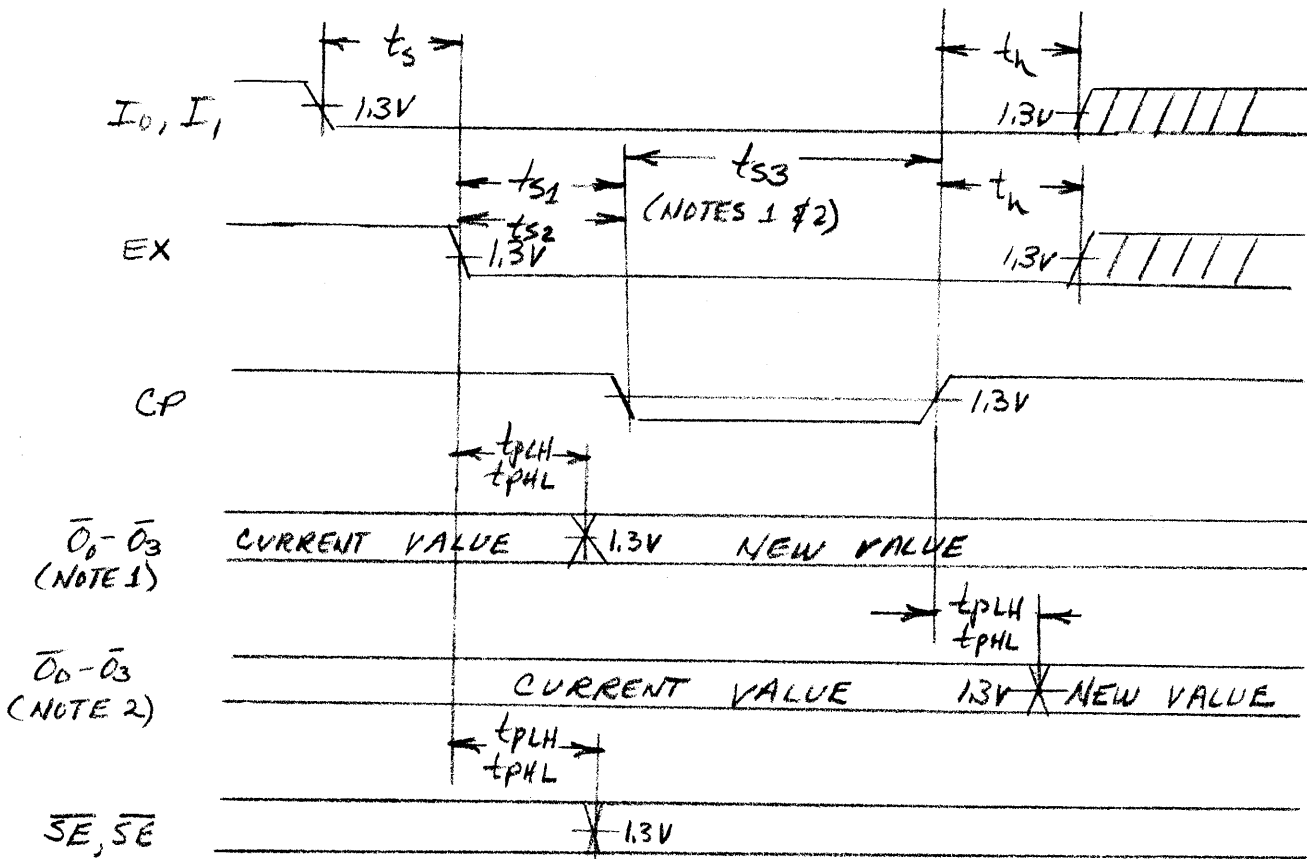 ts
th
I0, I1
1.3V
1.3V
tS1
tS3
th
tS2
(NOTES 1 & 2)
EX
1.3V
1.3V
CP
1.3V
tpLH
tpHL
O̅0-O̅3
CURRENT VALUE
1.3V
NEW VALUE
(NOTE 1)
tpLH
tpHL
O̅0-O̅3
CURRENT VALUE
1.3V
NEW VALUE
(NOTE 2)
tpLH
tpHL
S̅E̅, S̅E̅
1.3V